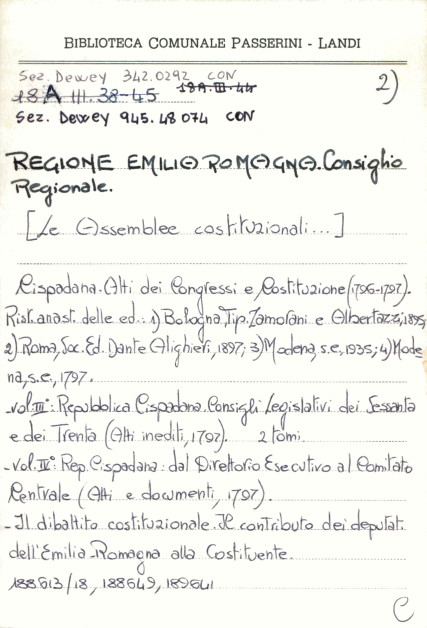 BIBLIOTECA COMUNALE PASSERINI - LANDI
Sez. Dewey 342.0292 CON
18A III. 38-45 18A.III.44 2)
Sez. Dewey 945.48074 CON
REGIONE EMILIA ROMAGNA. Consiglio
Regionale.
[Le Assemblee costituzionali...]
Cispadana. Atti dei Congressi e Costituzione (1796-1797).
Rist. anast. delle ed.: 1) Bologna, Tip. Zamorani e Albertazzi, 1895;
2) Roma, Soc. Ed. Dante Alighieri, 1897; 3) Modena, s.e, 1935; 4) Mode
na, s.e., 1797.
- vol. III°: Repubblica Cispadana. Consigli Legislativi dei Sessanta
e dei Trenta (Atti inediti, 1797). 2 tomi.
- vol. IV°: Rep. Cispadana: dal Direttorio Esecutivo al Comitato
Centrale (Atti e documenti, 1797).
- Il dibattito costituzionale. Il contributo dei deputati
dell'Emilia-Romagna alla Costituente.
188613/18, 188649, 189641
C